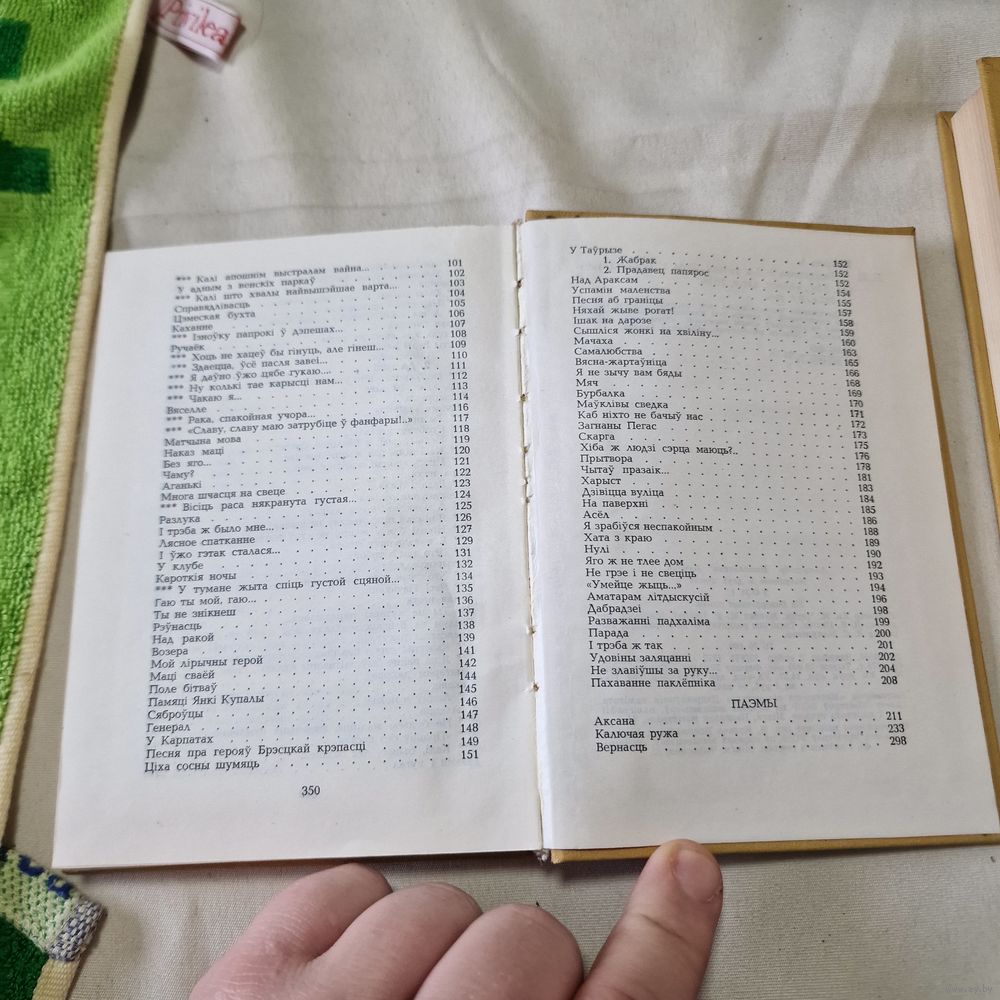 Prilea
*** Калі апошнім выстралам вайна... 101
У адным з венскіх паркаў 102
*** Калі што хвалы найвышэйшае варта... 103
Справядлівасць 104
Цэмеская бухта 105
Каханне 106
*** Ізноўку папрокі ў дэпешах... 107
Ручаёк 108
*** Хоць не хацеў бы гінуць, але гінеш... 109
*** Здаецца, ўсё пасля завеі... 110
*** Я даўно ўжо цябе гукаю.... 111
*** Ну колькі тае карысці нам... 112
*** Чакаю я... 113
Вяселле 114
*** Рака, спакойная учора... 116
*** «Славу, славу маю затрубіце ў фанфары!..» 117
Матчына мова 118
Наказ маці 119
Без яго... 120
Чаму? 121
Аганькі 122
Многа шчасця на свеце 123
*** Вісіць раса някранута густая... 124
Разлука 125
І трэба ж было мне... 126
Лясное спатканне 127
І ўжо гэтак сталася... 129
У клубе 131
Кароткія ночы 132
*** У тумане жыта спіць густой сцяной... 134
Гаю ты мой, гаю... 135
Ты не знікнеш 136
Рэўнасць 137
Над ракой 138
Возера 139
Мой лірычны герой 141
Маці сваёй 142
Поле бітваў 144
Памяці Янкі Купалы 145
Сяброўцы 146
Генерал 147
У Карпатах 148
Песня пра герояў Брэсцкай крэпасці 149
Ціха сосны шумяць 151
350
У Таўрызе 152
1. Жабрак 152
2. Прадавец папярос 152
Над Араксам 154
Успамін маленства 155
Песня аб граніцы 157
Няхай жыве рогат! 158
Ішак на дарозе 159
Сышліся жонкі на хвіліну... 160
Мачаха 163
Самалюбства 165
Вясна-жартаўніца 166
Я не зычу вам бяды 168
Мяч 169
Бурбалка 170
Маўклівы сведка 171
Каб ніхто не бачыў нас 172
Загнаны Пегас 173
Скарга 175
Хіба ж людзі сэрца маюць?.. 176
Прытвора 178
Чытаў празаік... 181
Харыст 183
Дзівіцца вуліца 184
На паверхні 185
Асёл 186
Я зрабіўся неспакойным 188
Хата з краю 189
Нулі 190
Яго ж не тлее дом 192
Не грэе і не свеціць 193
«Умейце жыць...» 194
Аматарам літдыскусій 196
Дабрадзеі 198
Разважанні падхаліма 199
Парада 200
І трэба ж так 201
Удовіны заляцанні 202
Не злавіўшы за руку... 204
Пахаванне паклёпніка 208
ПАЭМЫ
Аксана 211
Калючая ружа 233
Вернасць 298
www.ay.by